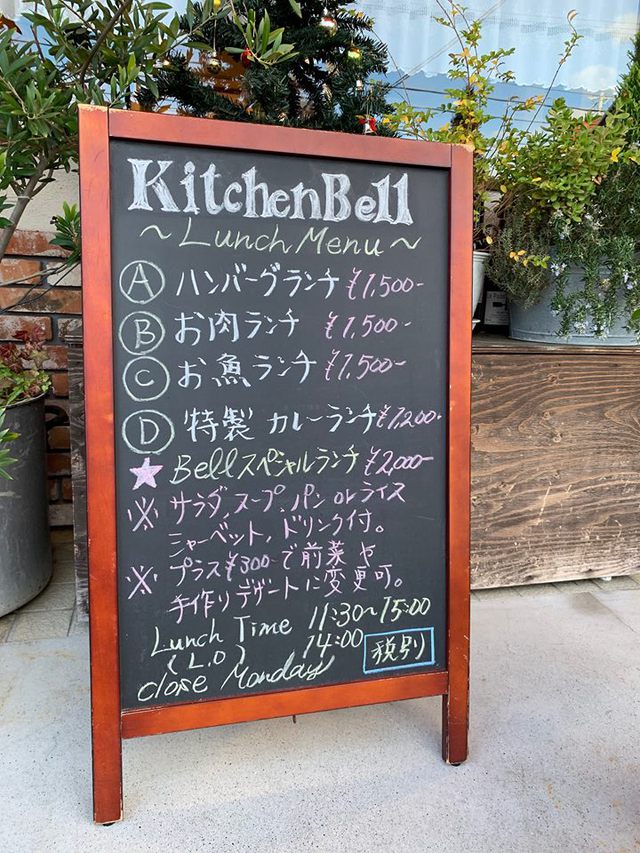 KitchenBell
~Lunch Menu~
Ⓐ ハンバーグランチ ¥1,500-
Ⓑ お肉ランチ ¥1,500-
Ⓒ お魚ランチ ¥1,500-
Ⓓ 特製 カレーランチ ¥1,200-
★ Bellスペシャルランチ ¥2,000-
※ サラダ、スープ、パン orライス
シャーベット、ドリンク付。
※ プラス¥300で前菜や
手作りデザートに変更可。
Lunch Time 11:30~15:00
(L.O) 14:00
close Monday 税別り